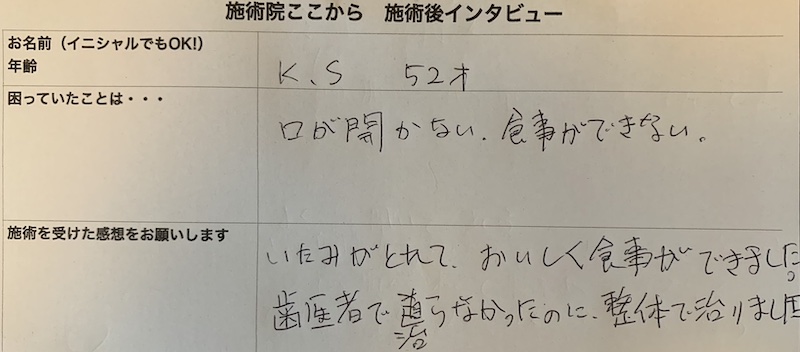 施術院ここから　施術後インタビュー
お名前（イニシャルでもOK!）
年齢
K、S　52才
困っていたことは・・・
口が開かない、食事ができない。
施術を受けた感想をお願いします
いたみがとれて、おいしく食事ができました。
歯医者で直らなかったのに、整体で治りました
治